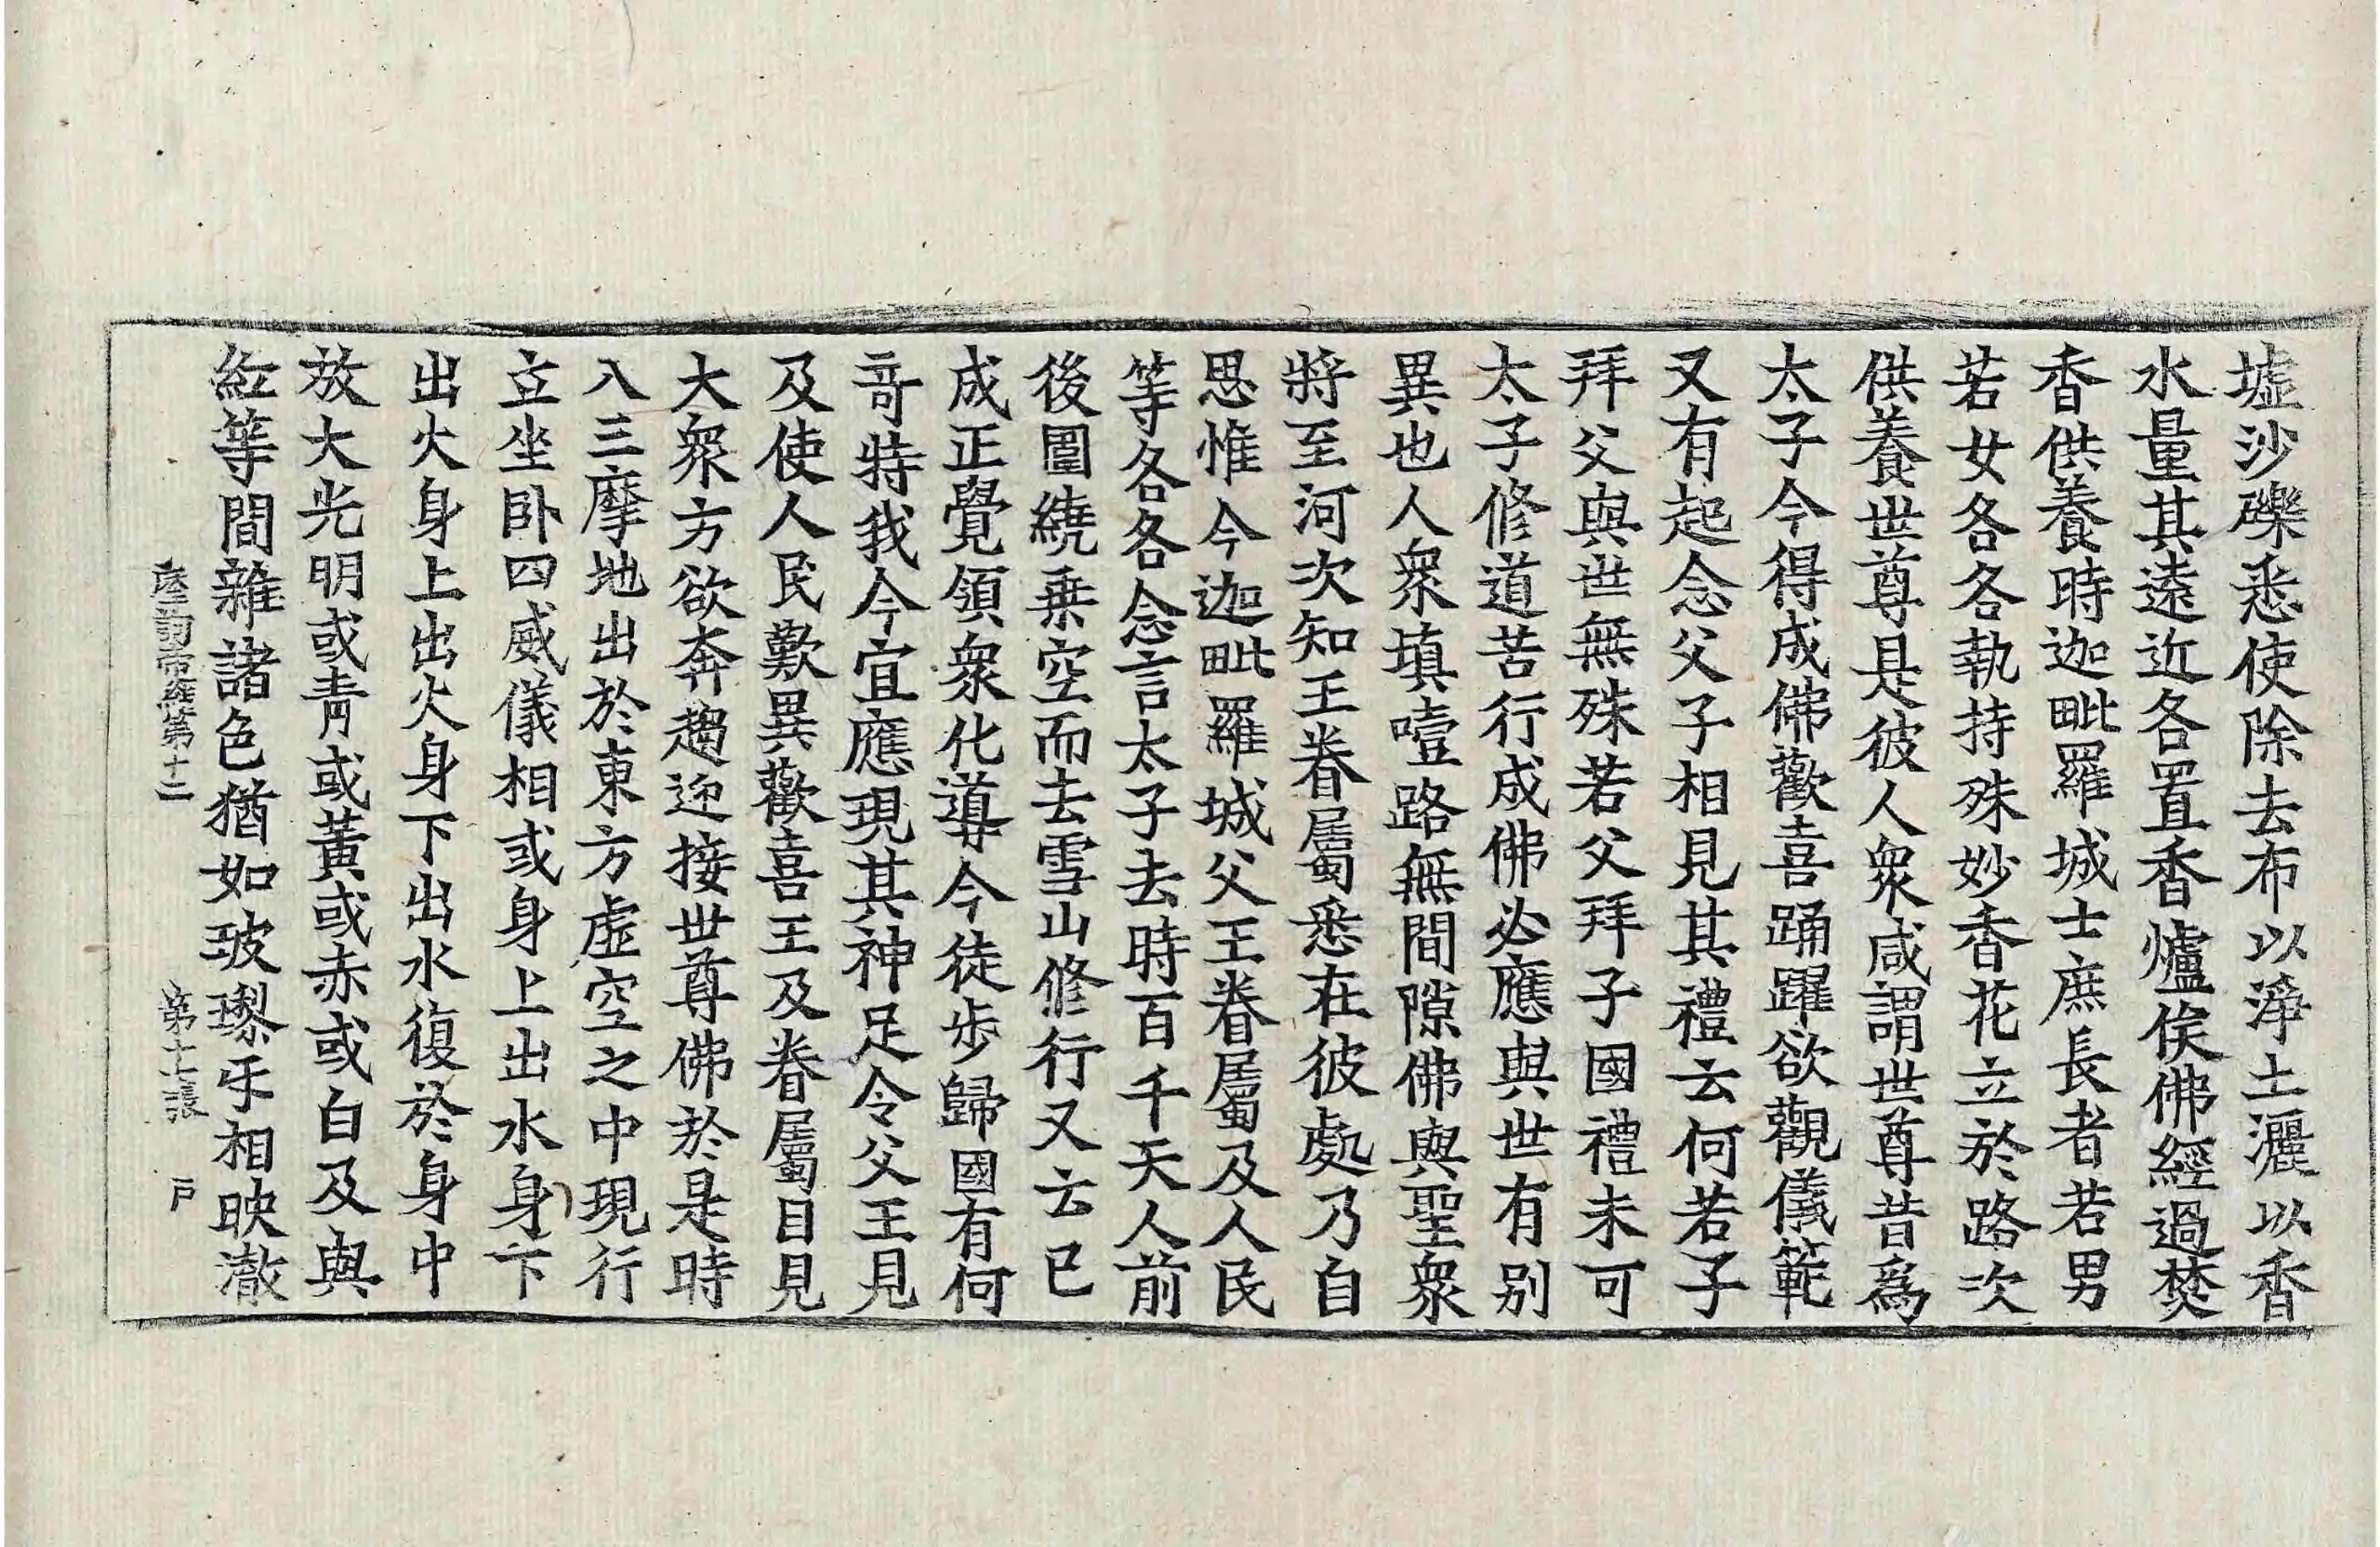 墟沙礫悉使除去布以淨土灑以香
水量其遠近各置香爐俟佛經過焚
香供養時迦毗羅城士庶長者若男
若女各各執持殊妙香花立於路次
供養世尊是彼人衆咸謂世尊昔爲
太子今得成佛歡喜踊躍欲觀儀範
又有起念父子相見其禮云何若子
拜父與世無殊若父拜子國禮未可
太子修道苦行成佛必應與世有別
異也人衆填噎路無間隙佛與聖衆
將至河次知王眷屬悉在彼處乃自
思惟今迦毗羅城父王眷屬及人民
等各各念言太子去時百千天人前
後圍繞乗空而去雪山修行又云已
成正覺領衆化導今徒步歸國有何
竒特我今宜應現其神足令父王見
及使人民歎異歡喜王及眷屬目見
大衆方欲奔趨迎接世尊佛於是時
入三摩地出於東方虛空之中現行
立坐卧四威儀相或身上出水身下
出火身上出火身下出水復於身中
放大光明或青或黃或赤或白及與
紅等間雜諸色猶如玻瓈乎相映澈
摩訶帝經第十二 第十二張 戸